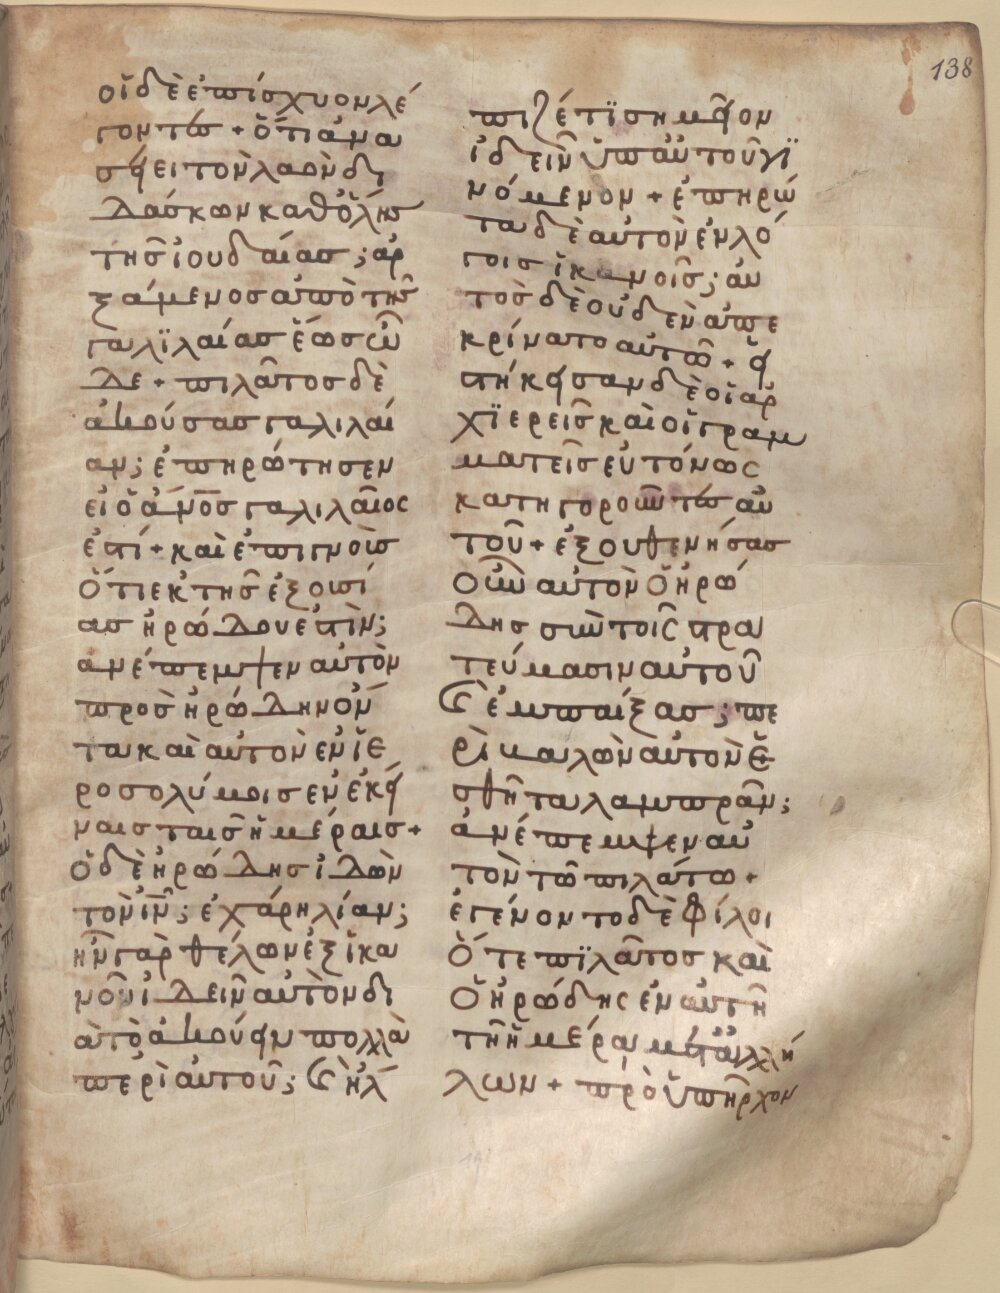 138
οἱ δὲ ἐπίσχυον λέ
γοντες + ὅτι ἀνα
σείει τὸν λαὸν δι
δάσκων καθ ὅλης
τῆς ἰουδαίας ; ἀρ
ξάμενος ἀπὸ τῆς
γαλϊλαίας ἕως ὧ
δε + πιλᾶτος δὲ
ἀκούσας γαλιλαί
αν ; ἐπηρώτησεν
εἰ ὁ ἄνο̅σ̅ γαλιλαῖος
ἐστί + καὶ ἐπιγνοὺς
ὅτι ἐκ τῆς ἐξουσί
ας ἡρώδου ἐστὶν ;
ἀνέπεμψεν αὐτὸν
πρὸς ἡρώδην ὄν
τα καὶ αὐτὸν ἐν ἱε
ροσολύμοις ἐν ἐκεί
ναις ταῖς ἡμέραις +
ὁ δὲ ἡρώδης ἰδὼν
τὸν ι̅ν̅ ; ἐχάρη λίαν ;
ἦν γὰρ θέλων ἐξ ἱκα
νοῦ ἰδεῖν αὐτὸν δι
ὰ τὸ ἀκούειν πολλὰ
περὶ αὐτοῦ ; καὶ ἤλ
πιζέ τϊ σημεῖον
ἰδεῖν ὑπ αὐτοῦ γϊ
νόμενον + ἐπηρώ
τα δὲ αὐτὸν ἐν λό
γοις ἱκανοῖς ; αὐ
τὸς δὲ οὐδὲν ἀπε
κρίνατο αὐτῶ + εἱ
στήκεισαν δὲ οἱ ἀρ
χϊερεῖς καὶ οἱ γραμ
ματεῖς εὐτόνως
κατηγοροῦντες αὐ
τοῦ + ἐξουθενήσας
οὖν αὐτὸν ὁ ἡρώ
δης σὺν τοῖς στρα
τεύμασιν αὐτοῦ
καὶ ἐμπαίξας ; πε
ρὶβαλὼν αὐτὸν ἐ
σθῆτα λαμπρὰν ;
ἀνέπεμψεν αὐ
τὸν τῶ πιλάτω +
ἐγένοντο δὲ φίλοι
ὅ τε πϊλᾶτος καὶ
ὁ ἡρώδης ἐν αὐτῆ
τῆ ἡμέρα μετ ἀλλή
λων + πρὸϋπῆρχον